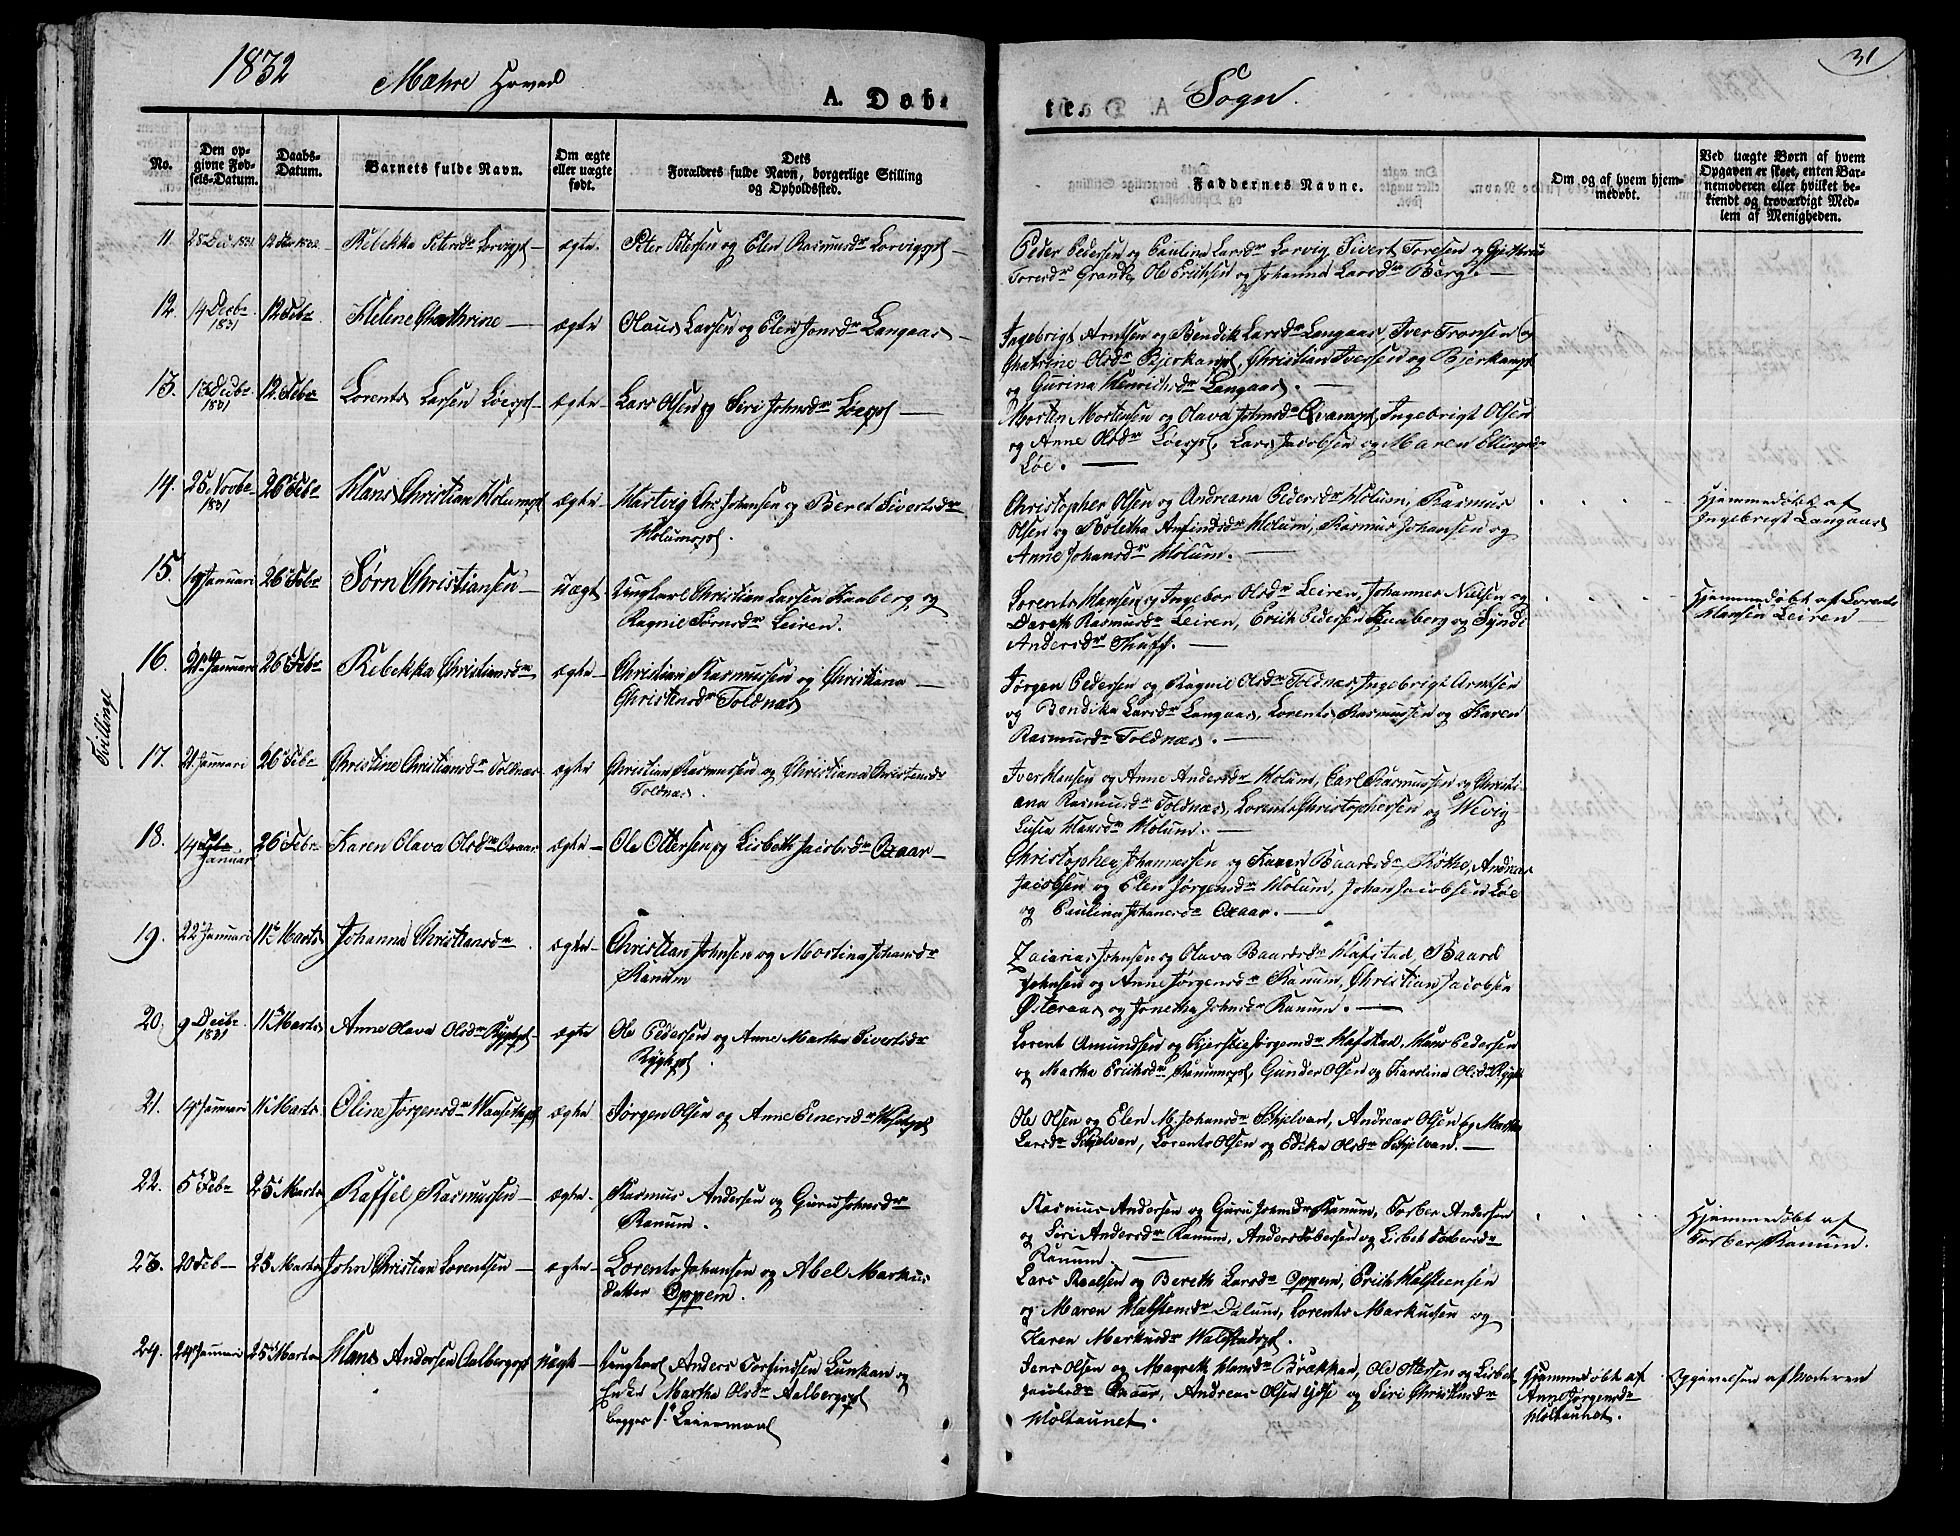 1832 Mæhre Hoved Sogn.
31
A. Døb-
te.
No.
Den op-
givne Fød-
sels-Datum.
Daabs-
Datum.
Barnets fulde Navn.
Om ægte
eller uægte
født.
Dets
Forældres fulde Navn, borgerlige Stilling
og Opholdssted.
Faddernes Navne.
Om og af hvem hjem-
medøbt.
Ved uægte Børn af hvem
Opgaven er skeet, enten Bar-
nemoderen eller hvilket be-
kiendt og troværdigt Med-
lem af Menigheden.
11. 25 Dec 1831 Rebekka Petersdr ægte Peter Petersen og Elen Rasmusdr
Peder Pedersen og Paulina Larsdr Lorvig, Sivert Toresen og
Toresdr Grande, Ole Erichsen og Johanna Larsdr Berg. —
12. 14 Decbr 1831 12 Febr Helene Chathrine — ægte Olaus Larsen og Elen Jonsdr Langaas —
Ingebrigt Arntsen og Bendik Larsdr Langaas, Iver Tronsen og
Chatrine Olsdr Bjerkampl, Christian Iversen og Bjerkampl
og Gurina Henrichsdr Langaas. —
13. 13 Decbr 1831 12 Febr Lorents Larsen Løepl — ægte Lars Olsen og Siri Johnsdr Løepl —
Morten Mortensen og Olava Johnsdr Qvampl, Ingebrigt Olsen
og Anne Olsdr Løepl, Lars Jacobsen og Maren Ellingsdr
Løe. —
14. 25 Novbr 1831 26 Febr Hans Christian Holumspl ægte Hartvig Chr: Johansen og Beret Sivertsdr
Holumspl.
Christopher Olsen og Andreana Pedersdr Holum, Rasmus
Olsen og Boletha Arfindsdr Holum, Rasmus Johansen og
Anne Johansdr Holum. —
Hjemmedøbt af
Ingebrigt Langaas
15. 19 Januari 26 Febr Sørn Christiansen — uægt. Ungkarl Christian Larsen Kaaberg og
Ragnil Sørnsdr Leiren.
Lorents Hansen og Ingebor Olsdr Leiren, Johannes Nielsen og
Dareth Rasmusdr Leiren, Erich Pedersen Kaaberg og Synvi
Andersdr Thuff. —
Hjemmedøbt af Lorents
Hansen Leiren —
Tvillinge
16. 21 Januari 26 Febr Rebekka Christiansdr ægte Christian Rasmussen og Christiana —
Christensdr Toldnæs
Jørgen Pedersen og Ragnil Olsdr Toldnæs, Ingebrigt Arntsen
og Bendika Larsdr Langaas, Lorents Rasmussen og Karen
Rasmusdr Toldnæs. —
17. 21 Januari 26 Febr Christine Christiansdr Toldnæs ægte Christian Rasmussen og Christiana Christensdr
Toldnæs.
Iver Hansen og Anne Andersdr Holum, Carl Rasmussen og Christi-
ana Rasmusdr Toldnæs, Lorents Christophersen og Wevig
Lusia Hansdr Holum. —
18. 14 Januar 26 Febr Karen Olava Olsdr Oxaar ægte — Ole Ottersen og Lisbeth Jacobsdr Oxaar —
Christopher Johannessen og Karen Baardsdr Røthe, Andreas
Jacobsen og Elen Jørgensdr Holum, Johan Jacobsen Løe
og Paulina Johanesdr Oxaar. —
19. 22 Januari 11 Marts Johanna Christiansdr ægte — Christian Johnsen og Martina Johansdr
Ranum
Zacarias Johnsen og Olava Baardsdr Hafstad, Baard
Johnsen og Anne Jørgensdr Ranum, Christian Jacobsen
Østeraas og Jonetha Johnsdr Ranum. —
20. 9 Decbr 1831 11 Marts Anne Olava Olsdr Rygpl — ægte Ole Pedersen og Anne Martha Sivertsdr
Rygpl.
Lorent Amundsen og Kjerstie Jørgensdr Hafstad, Hans Pedersen
og Martha Erichsdr Ranumspl, Gunder Olsen og Karolina Olsdr Rygpl
21. 19 Januari 11 Marts Oline Jørgensdr ægte — Jørgen Olsen og Anne Einersdr
Ole Olsen og Elen M. Johansdr Schjelvan, Andreas Olsen og Martha
Larsdr Schjelvan, Lorents Olsen og Edika Olsdr Schjelvan. —
22. 5 Febr 25 Marts Raffel Rasmussen — ægte — Rasmus Andersen og Guru Johnsdr
Ranum.
Rasmus Andersen og Guru Johnsdr Ranum, Torber Andersen
og Siri Andersdr Ranum, Anders Tobersen og Lisbet Torbersdr
Ranum —
Hjemmedøbt af
Torber Ranum.
23. 20 Feb — 25 Marts John Christian Lorentsen — ægte — Lorents Johansen og Abel Markus
datter Oppem.
Lars Paalsen og Bereth Larsdr Oppem, Erich Halsteensen
og Maren Halstensdr Dalum, Lorents Markusen og
Karen Markusdr Walstadspl.
24. 24 Januari 25 Marts Hans Andersen Aalbergspl uægt — Ungkarl Anders Torfindsen Lunkan og
Enke Martha Olsdr Aalbergspl
begges 1ste Leiermaal
Jens Olsen og Magreth Hansdr Brækkan, Ole Ottersen og Lisbet
Jacobsdr Oxaar, Andreas Olsen Ydse og Siri Christensdr
Holtaunet.
Hjemmedøbt af
Anne Jørgensdr
Holtaunet.
Opgivelsen af Moderen